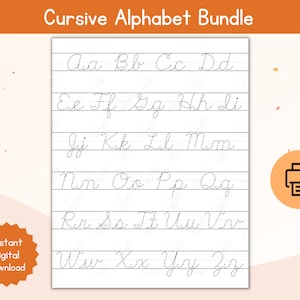 Cursive Alphabet Bundle
Aa Bb Cc Dd
Ee Ff Gg Hh Ii
Jj Kk Ll Mm
Nn Oo Pp Qq
Rr Ss Tt Uu Vv
Ww Xx Yy Zz
nstant
igital
ownload